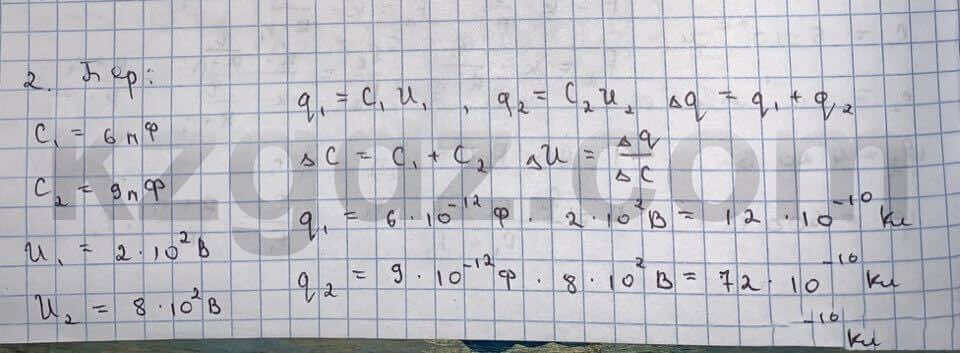 2. Бер:
C₁ = 6 пФ
C₂ = 9 пФ
U₁ = 2·10² В
U₂ = 8·10² В
q₁ = C₁U₁, q₂ = C₂U₂ Δq = q₁ + q₂
ΔC = C₁ + C₂ ΔU = Δq/ΔC
q₁ = 6·10⁻¹² Ф · 2·10² В = 12·10⁻¹⁰ Кл
q₂ = 9·10⁻¹² Ф · 8·10² В = 72·10⁻¹⁰ Кл
⁻¹⁰ Кл
kzgdz.com